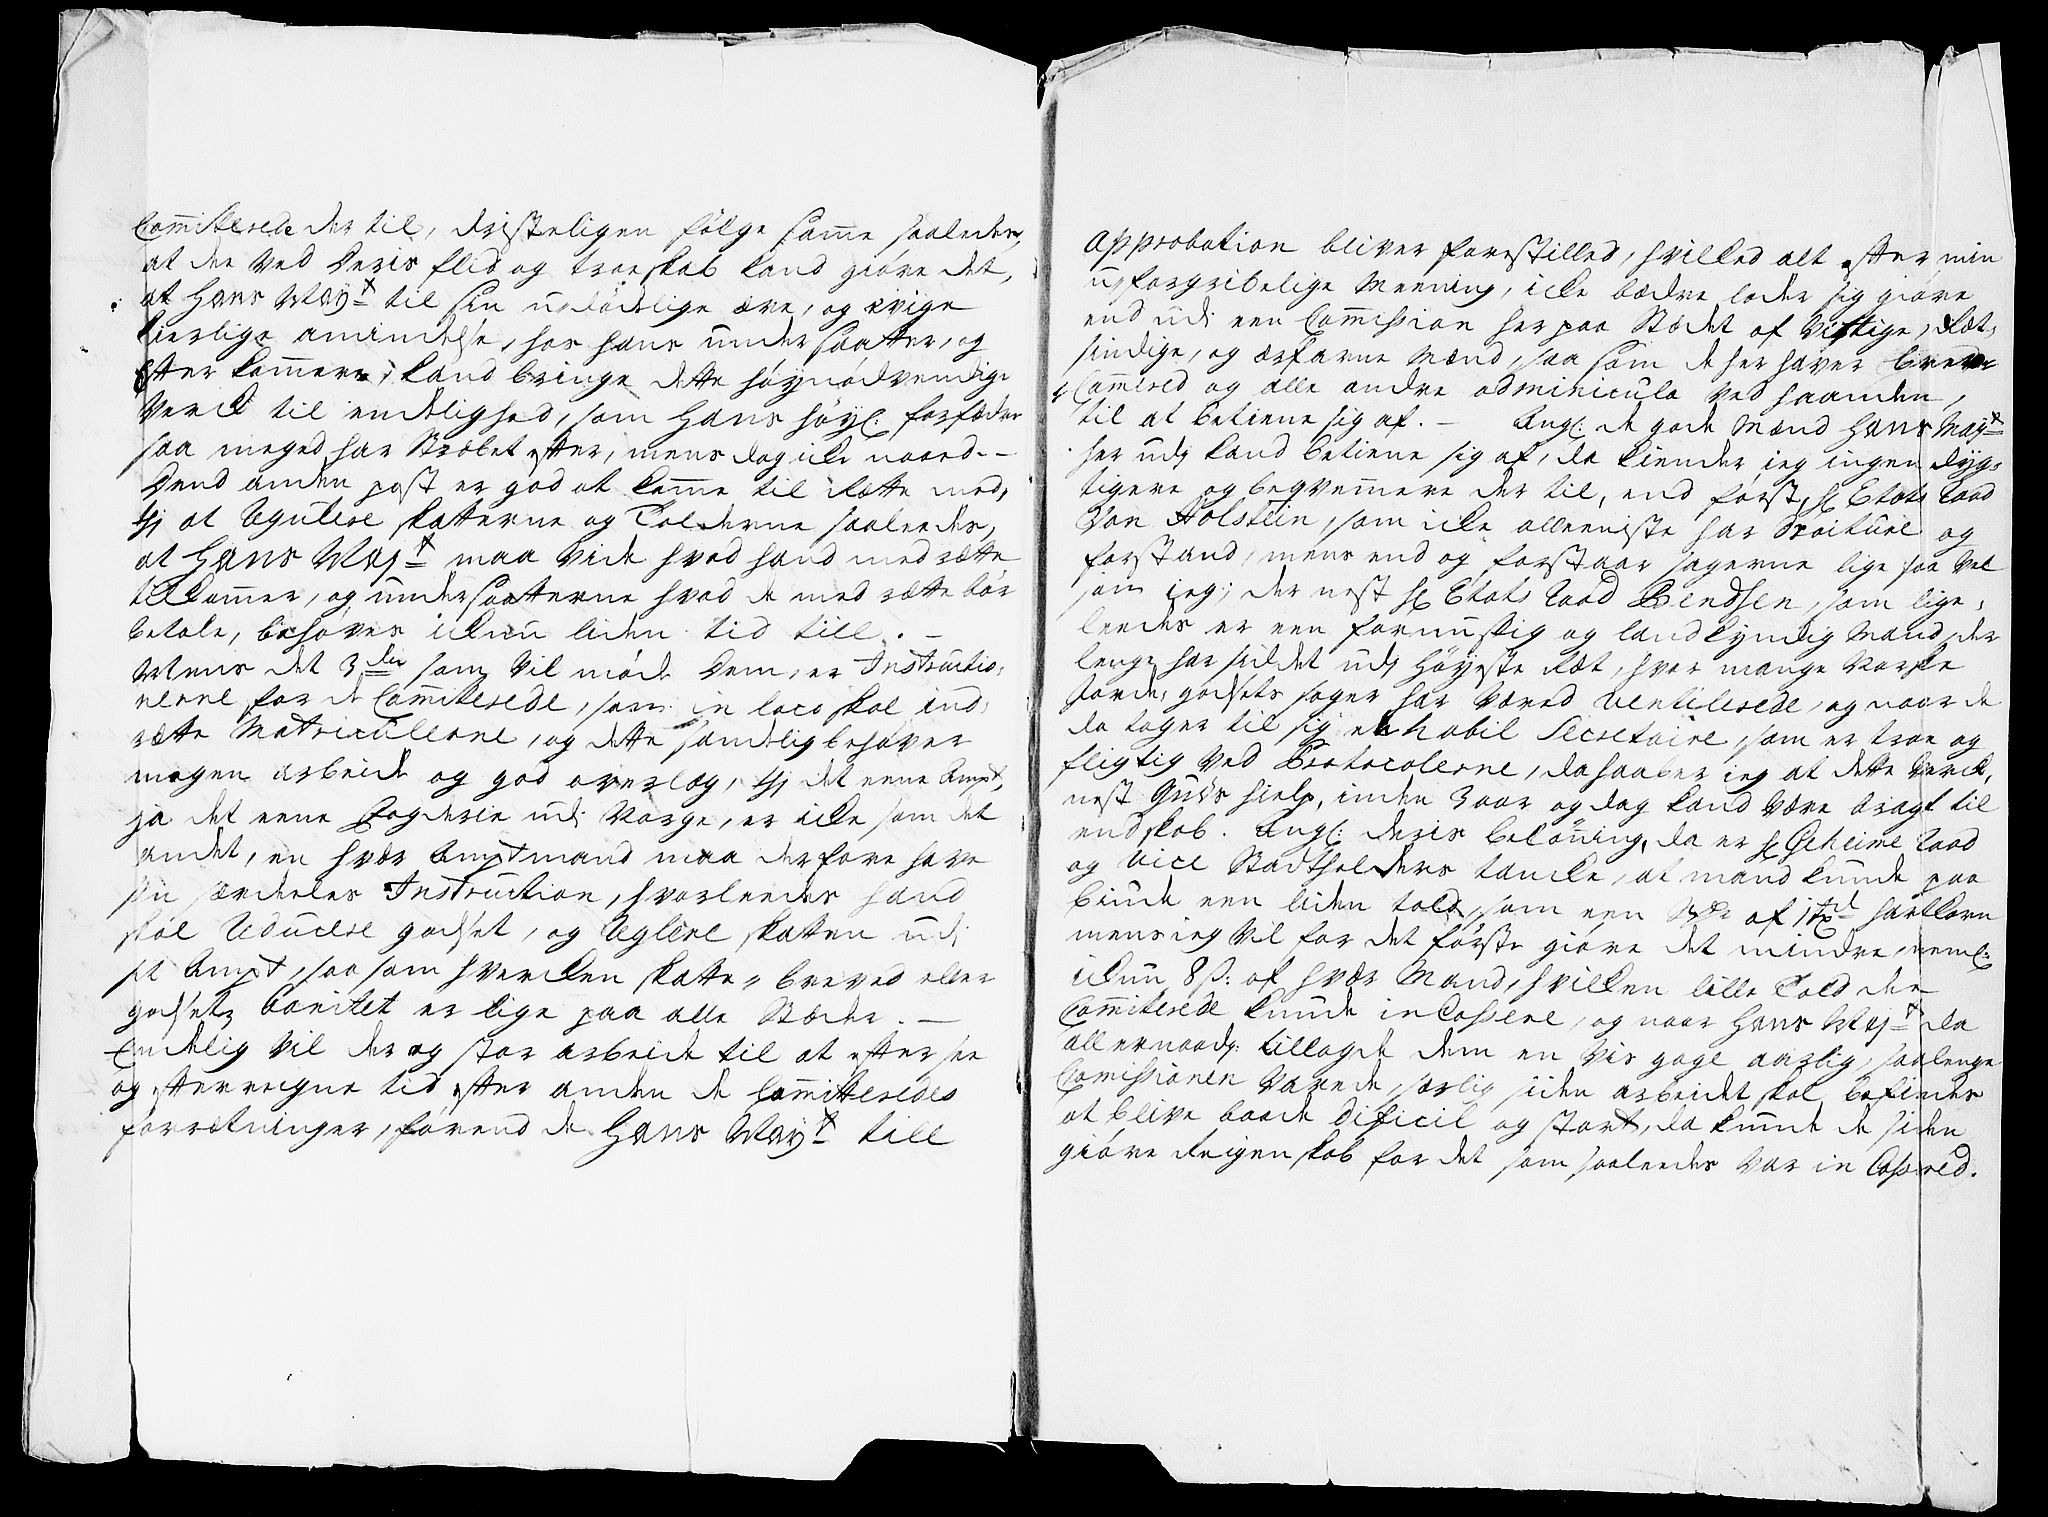 Com̄itterede der til, dristeligen følge sam̄e saaledes,
at der ved Deris flid og troeskab kand giøre det,
at Hans May:t til sin udødelige ære, og ævige
kierlige amindelse, hos hans undersaatter, og
Efterkom̄ere, kand bringe dette høynødvendige
verck til endelighed, som Hans høyl: forfædre
saa meged har stræbet efter, mens dog icke naaed. –
Dend anden post er god at kom̄e til rætte med,
thj at egulere skatterne og Tolderne saaleedes,
at Hans May:t maa vide hvad hand med rætte
tilkommer, og undersaatterne hvad de med rætte bør
betale, behøves ickun liden tid till. –
Mens det 3die som vil møde Dem, er Instructio,
nerne for de Com̄iterede, som in loco skal ind,
rætte Matriculerne, og dette sandelig behøver
megen arbeide og god overlæg, thj det eene Ampt,
ja det eene Fogderie udi Norge, er icke som det
andet, en hvær Amptmand maa derfore have
sin særdeeles Instruction, hvorleedes hand
skal reducere godset, og reglere skatten udj
sit Ampt, saa som hvercken skatte, breved eller
godsetz bonitet er lige paa alle stæder. –
Endelig vil der og stor arbeide til at eftersee
og efterreigne tid efter anden de Com̄itteredes
forretninger, førend de Hans May:t till
approbation bliver forestilled, hvilked alt efter min
uforgribelige meening, icke bædre lader sig giøre
end udj een Com̄ission her paa stædet af vittige, ræt,
sindige, og ærfarne mænd, saa som de her haver
Cam̄ered og alle andre adminicula ved haanden,
til at betiene sig af. – Angl: de gode mænd Hans May:t
her udj kand betiene sig af, da kiender jeg ingen dyg,
tigere og beqvemmere der til, end først hr Etats Raad
Von Holstein, som icke alleeniste har Droiture og
forstand, mens end og forstaar sagerne lige saa vel
som jeg; der nest hr Etats Raad Bendsen, som lige,
leedes er een fornuftig og landkyndig mand, der
lenge har siddet udj Høyeste Ræt, hvor mange Norske
Jorde, godsets sager har væred ventilerede, og naar de
da tager til sig en habil Secretaire, som er troe og
fligtig ved Protocolerne, da haaber jeg at dette verck,
nest Guds hielp, inden 3 aar og dag kand være bragt til
endskab. Angl: deris belønning, da er hr Geheime Raad
og Vice Stadtholders tancke, at mand kunde paa
biude een liden told, som een af 1 hartkorn
mens jeg vil for det første giøre det mindre, neml:
ickun 8 ß: af hvær Mand, hvilken lille Told der
Com̄iterede kunde incassere, og naar Hans May:t da
allernaadg: tillagde dem en vis gage aarlig, saalenge
Com̄issionen varede, særlig siden arbeidet skal befindes
at blive baade dificil og stort, da kunde de siden
giøre Reigenskab for det som saaleedes var in Cassered.